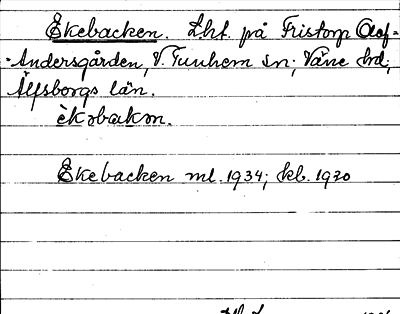 Ekebacken. Lht. på Fristorp Olof-
-Andersgården, V. Tunhem sn; Väne hd;
Älfsborgs län.
èkəbakən.
Ekebacken ml. 1934; kb. 1930